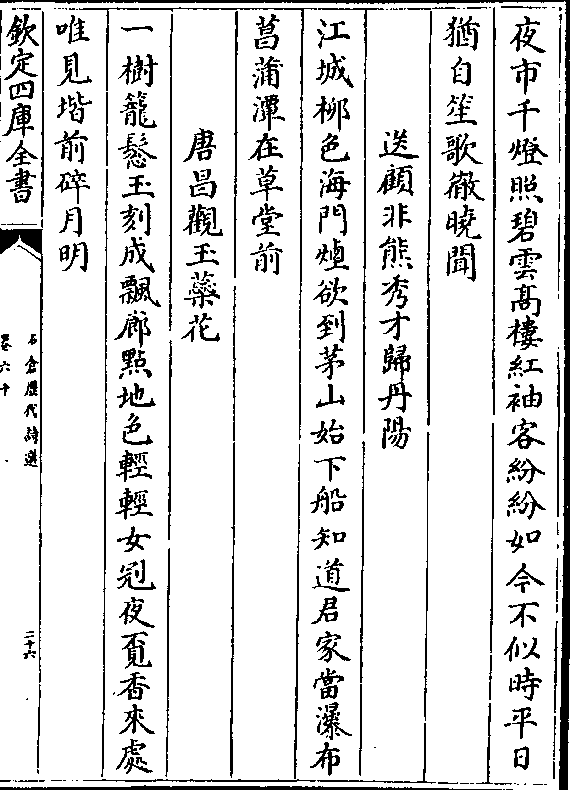 夜市千燈照碧雲髙樓紅袖客紛紛如今不似時平日
猶自笙歌徹曉聞
送顧非熊秀才歸丹陽
江城柳色海門煙欲到茅山始下船知道君家當瀑布
菖蒲潭在草堂前
唐昌觀玉蘂花
一樹籠鬆玉刻成飄廊㸃地色輕輕女冠夜覓香來處
唯見堦前碎月明
欽定四庫全書
石倉歷代詩選
卷六十
二十六